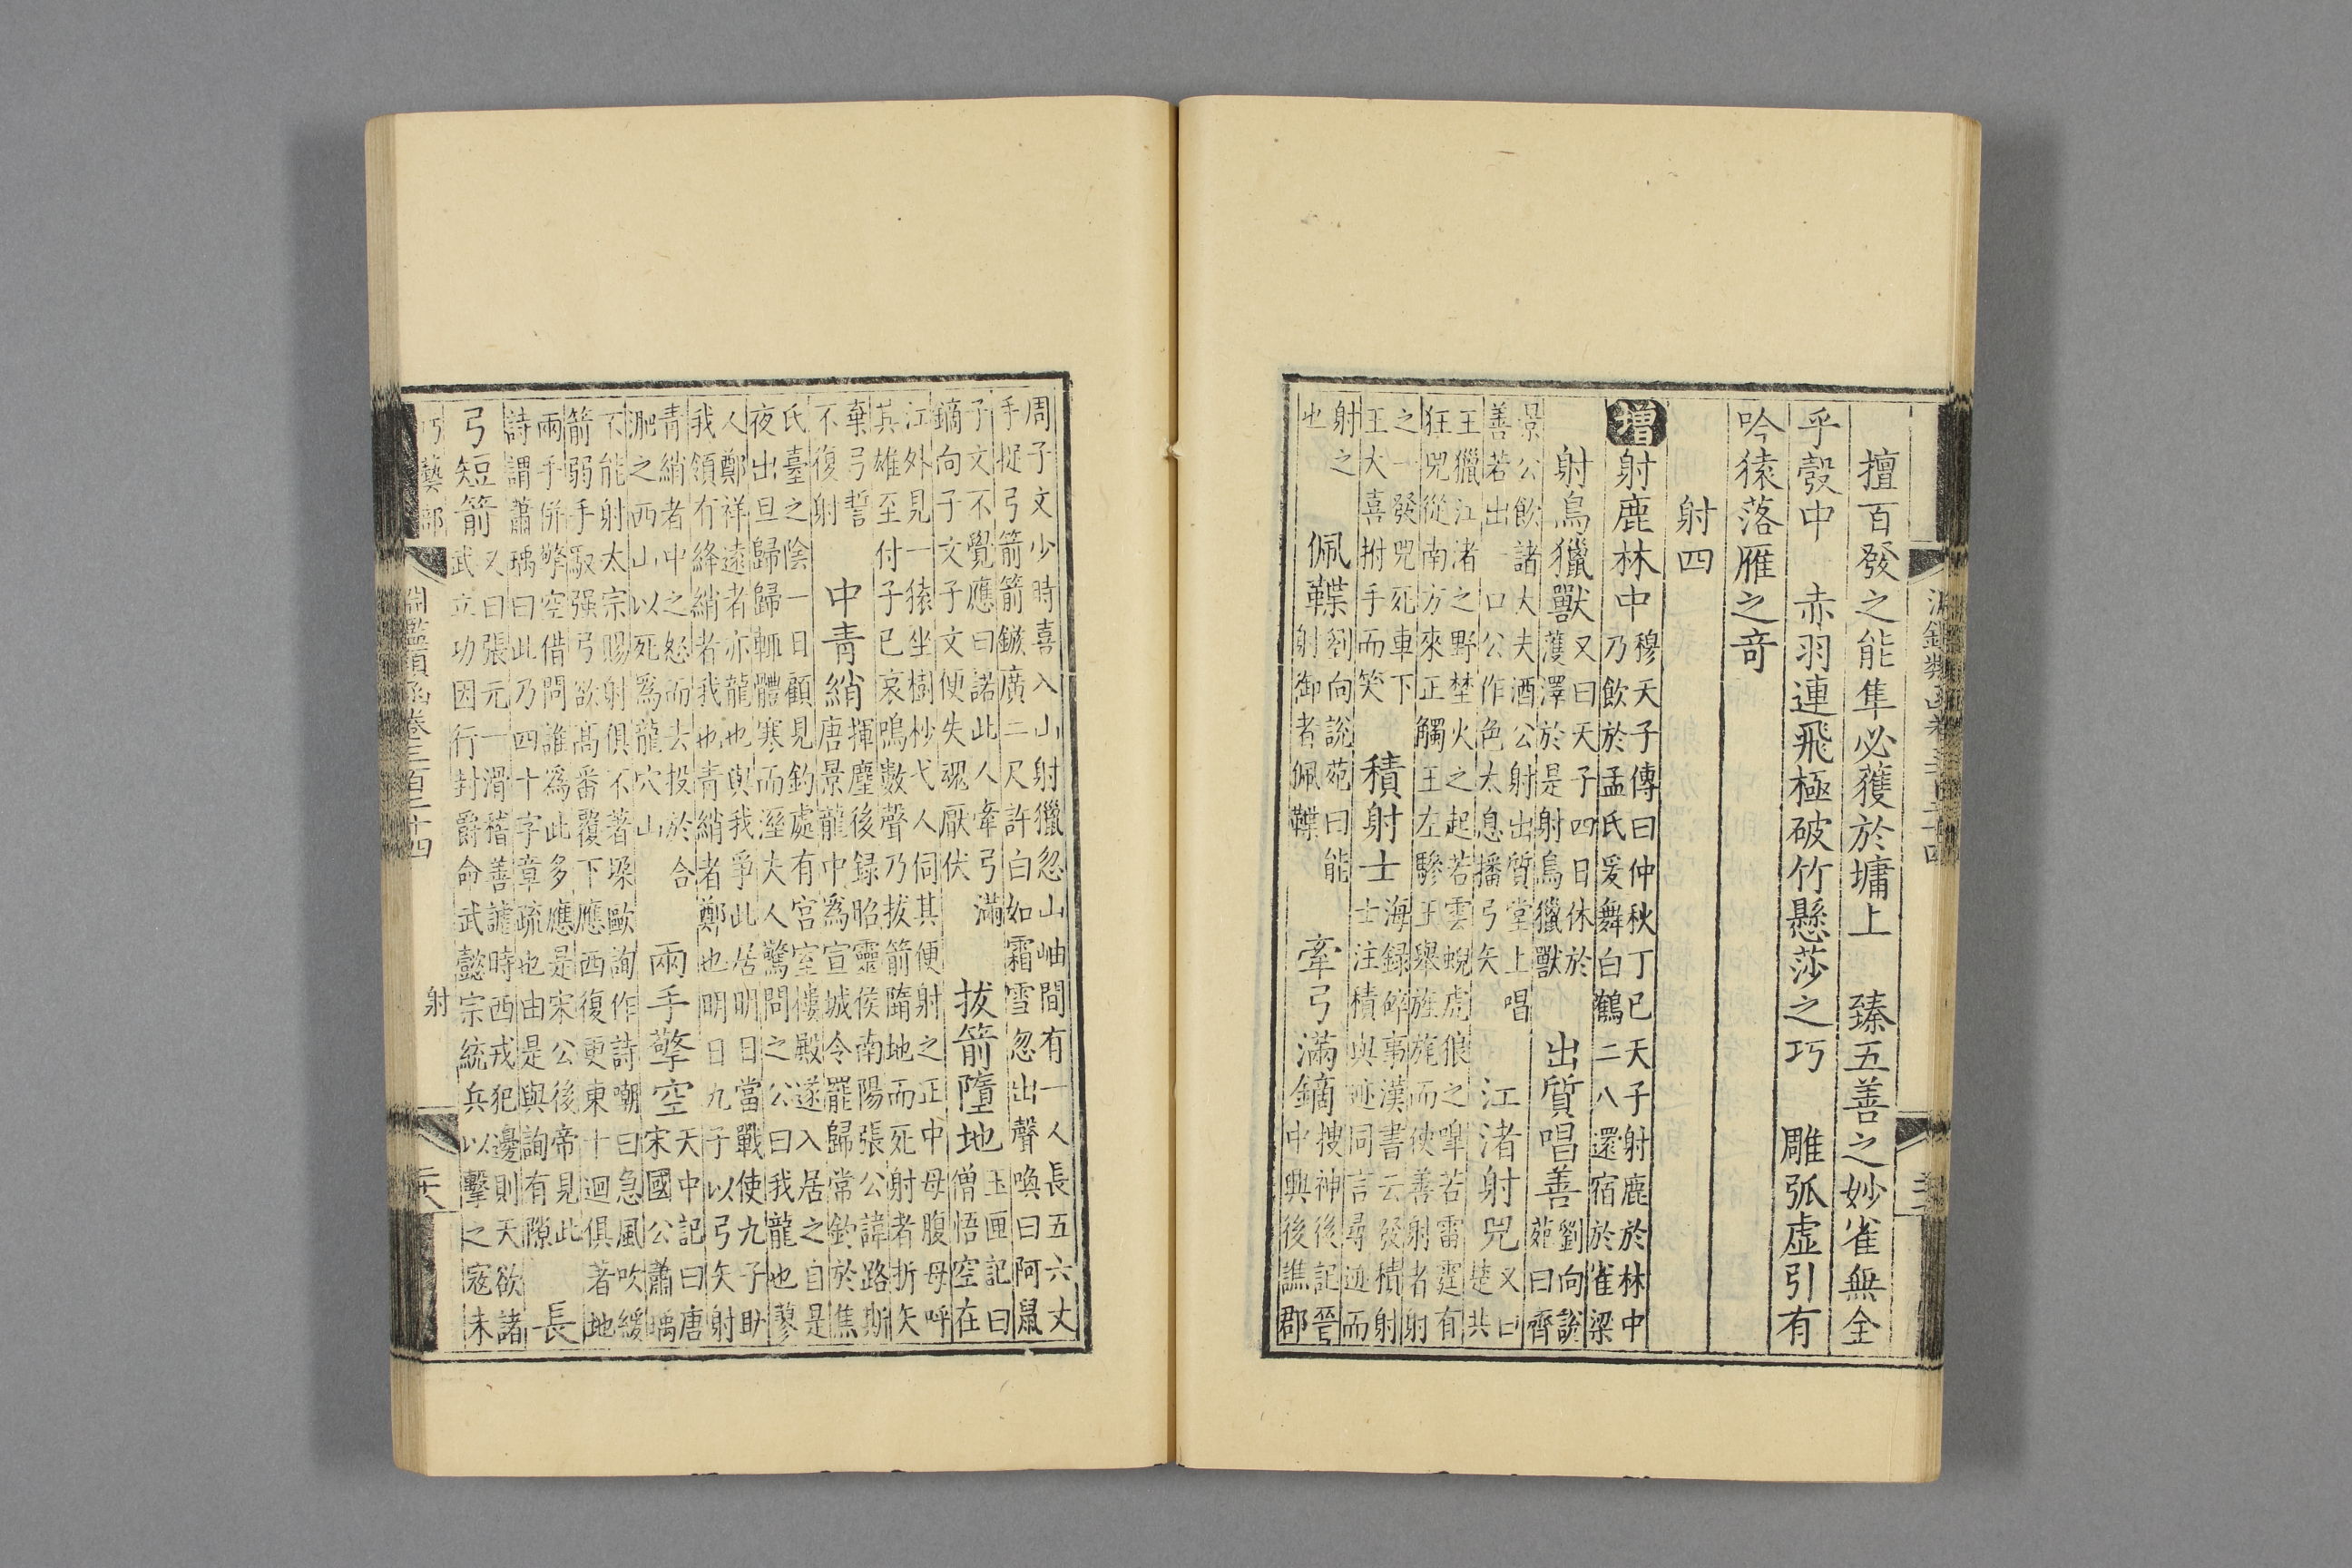 淵鑑類函卷三百二十四
擅百發之能隼必獲於墉上　臻五善之妙雀無全
乎彀中　赤羽連飛極破竹懸莎之巧　雕弧虛引有
吟猿落雁之奇
射四
增射鹿林中
穆天子傳曰仲秋丁巳天子射鹿於林中
乃飲於孟氏爰舞白鶴二八還宿於雀梁
射鳥獵獸
又曰天子四日休於
濩澤於是射鳥獵獸
出質唱善
劉向說
苑曰齊
景公飲諸大夫酒公射出質堂上唱
善若出一口公作色太息播弓矢
江渚射兕
又曰
楚共
王獵江渚之野埜火之起若雲蜺虎狼之嗥若雷霆有
狂兕從南方來正觸王左驂王舉旌旄而使善射者射
之一發兕死車下
王大喜拊手而笑
積射士
海録碎事漢書云發積射
士注積與迹同言尋迹而
射之
也
佩鞢
劉向說苑曰能
射御者佩鞢
牽弓滿鏑
搜神後記晉
中興後譙郡
周子文少時喜入山射獵忽山岫間有一人長五六丈
手捉弓箭箭鏃廣二尺許白如霜雪忽出聲喚曰阿鼠
子文不覺應曰諾此人牽弓滿
鏑向子文子文便失魂厭伏
拔箭墮地
玉匣記曰
僧悟空在
江外見一猿坐樹杪弋人伺其便射之正中母腹母呼
其雄至付子已哀鳴數聲乃拔箭隋地而死射者折矢
棄弓誓
不復射
中青綃
揮塵後録昭靈侯南陽張公諱路斯
唐景龍中爲宣城令罷歸常釣於焦
氏臺之陰一日顧見釣處有宫室樓殿遂入居之自是
夜出旦歸歸輒體寒而溼夫人驚問之公曰我龍也蓼
人鄭祥遠者亦龍也與我爭此居明日當戰使九子助
我領有絳綃者我也青綃者鄭也明日九子以弓矢射
青綃者中之怒而去投於合
淝之西山以死爲龍穴山
兩手擎空
天中記曰唐
宋國公蕭瑀
不能射太宗賜射俱不著垜歐詢作詩嘲曰急風吹緩
箭弱手馭强弓欲高番覆下應西復更東十迴俱著地
兩手併擎空借問誰爲此多應是宋公後帝見此
詩謂蕭瑀曰此乃四十字章疏也由是與詢有隙
長
弓短箭
又曰張元一滑稽善謔時西戎犯邊則天欲諸
武立功因行封爵命武懿宗統兵以擊之寇未
巧藝部　淵鑑類函卷三百二十四　射　二八